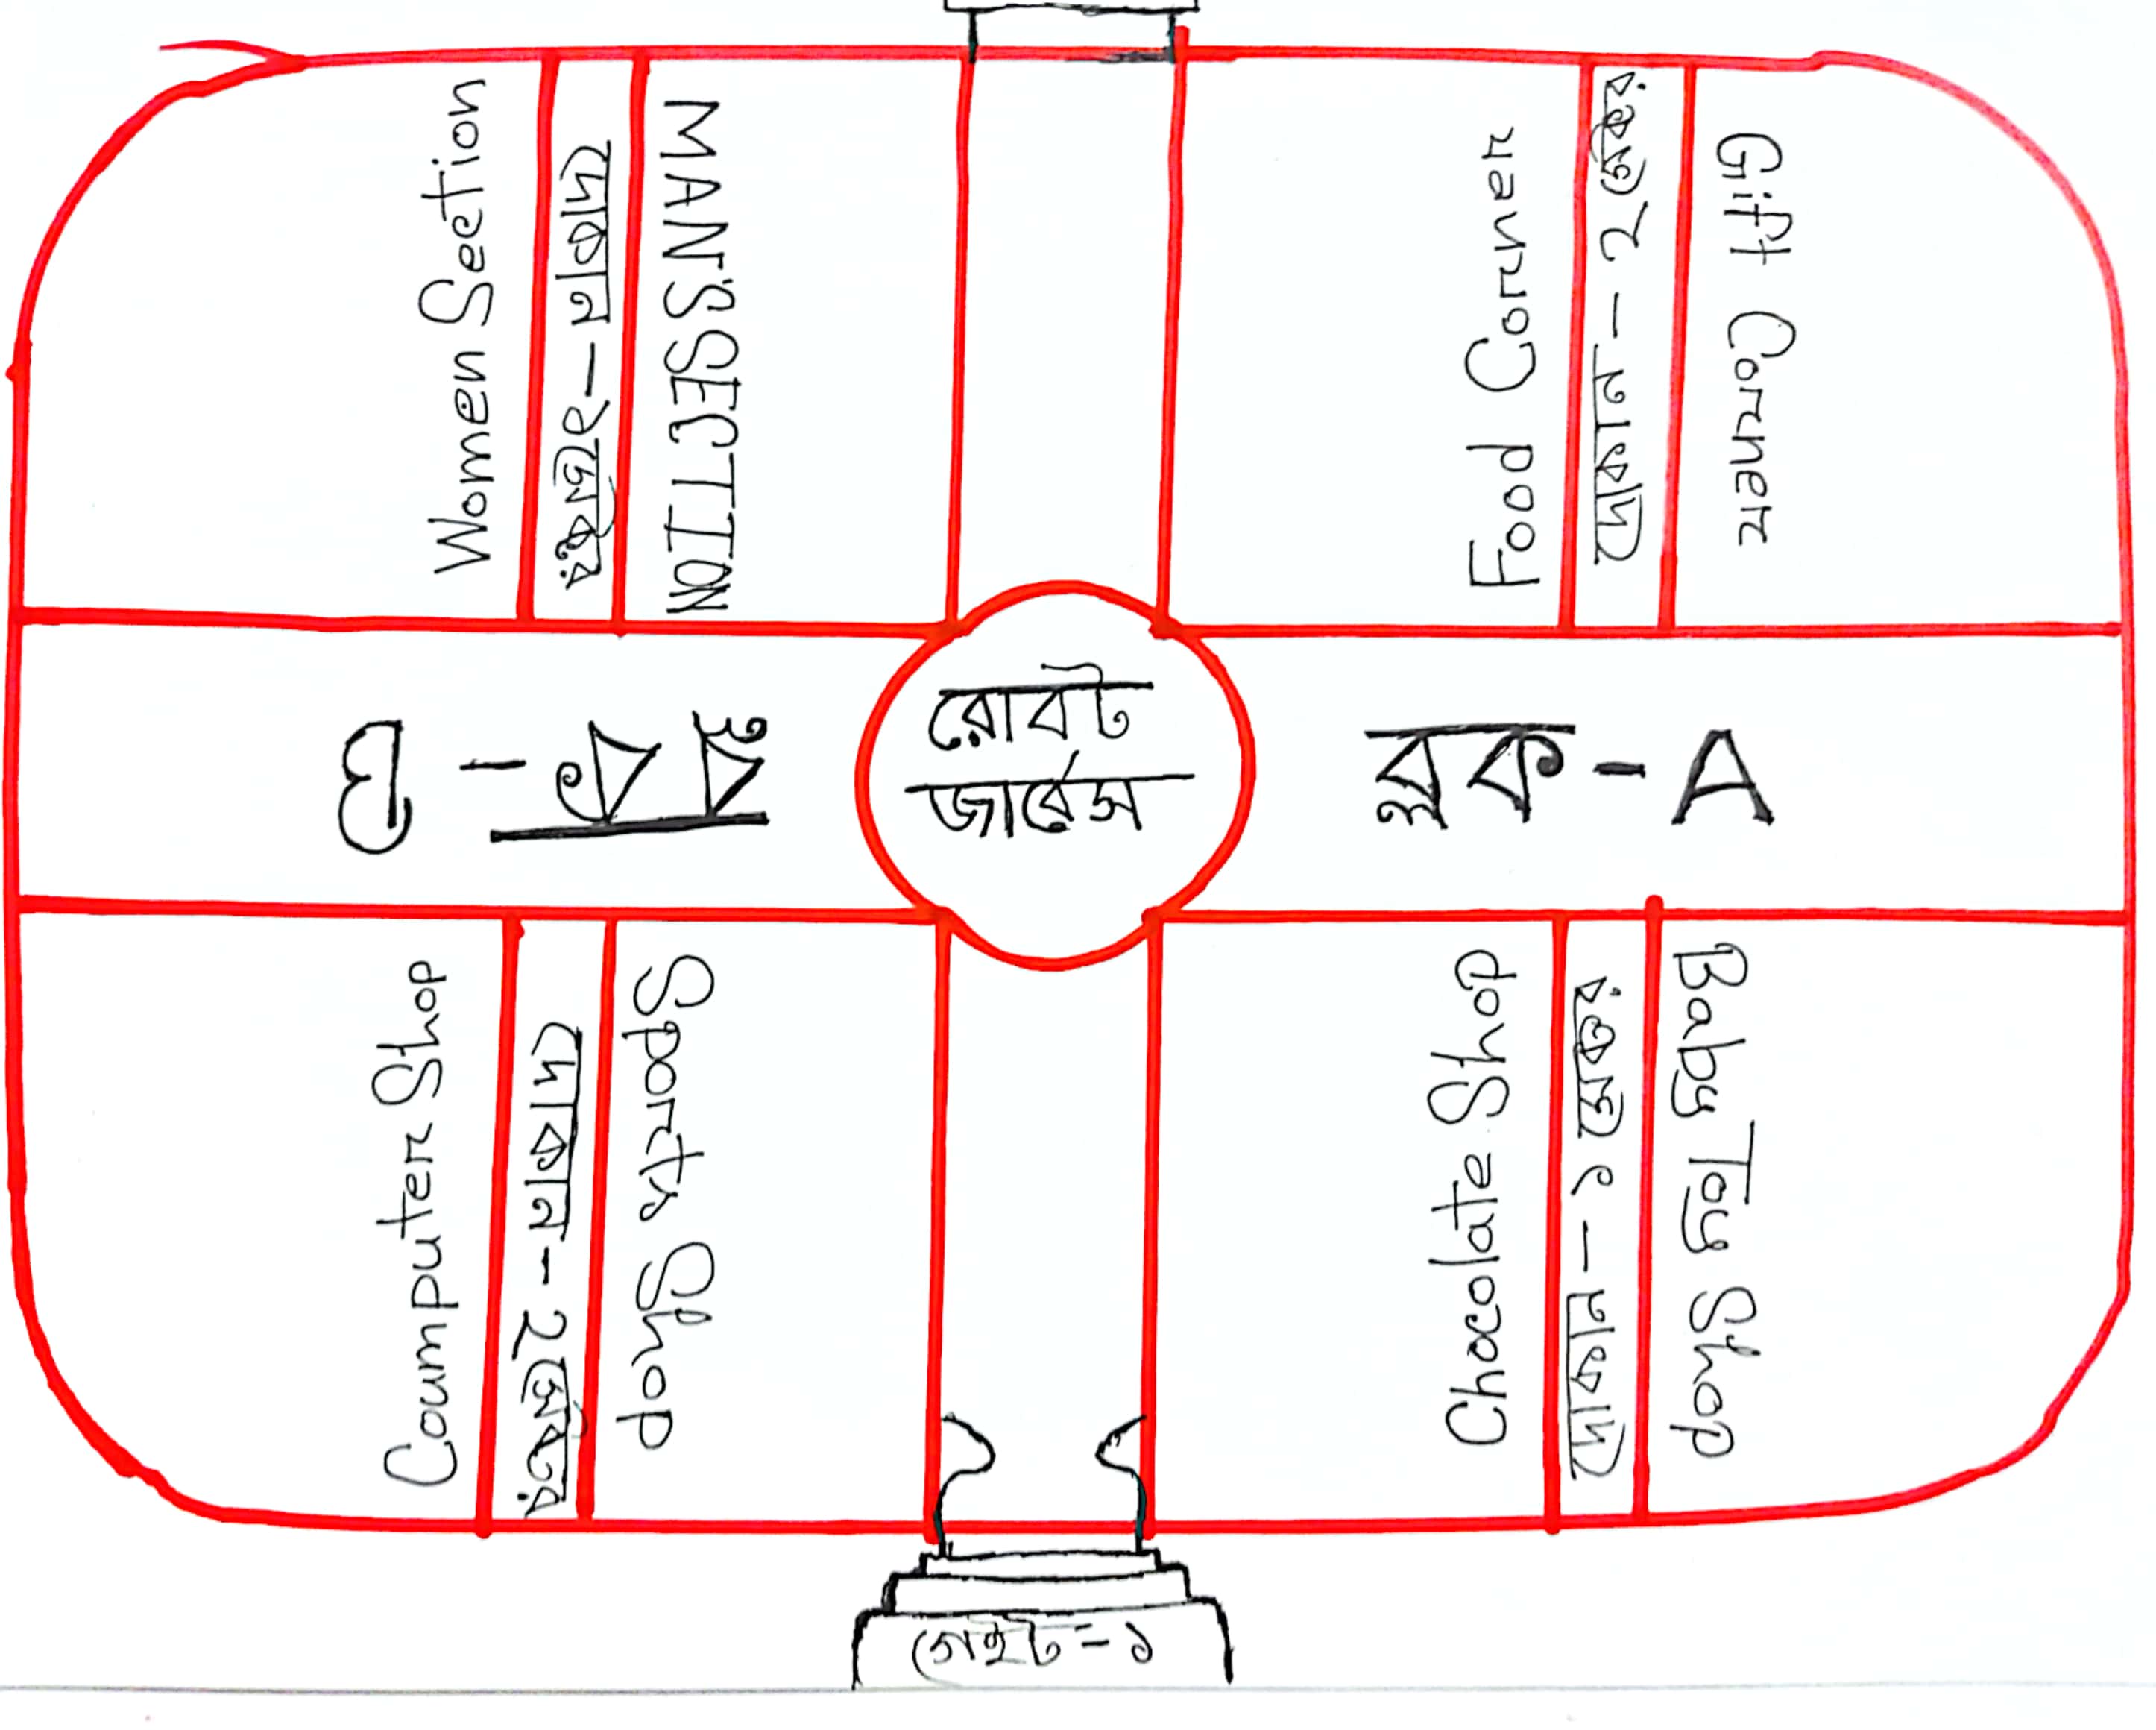 Women Section
দোকান - ১ভেতর
MAN'S SECTION
Food Corner
দোকান - ২
Gift Corner
ব্লক - B
রোবট
সার্ভিস
ব্লক - A
Coumputer Shop
দোকান - ২
Sports Shop
Chocolate Shop
দোকান - ১
Baby Toy Shop
গেইট - ১